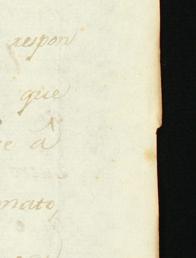 respon
que
e â
mato,